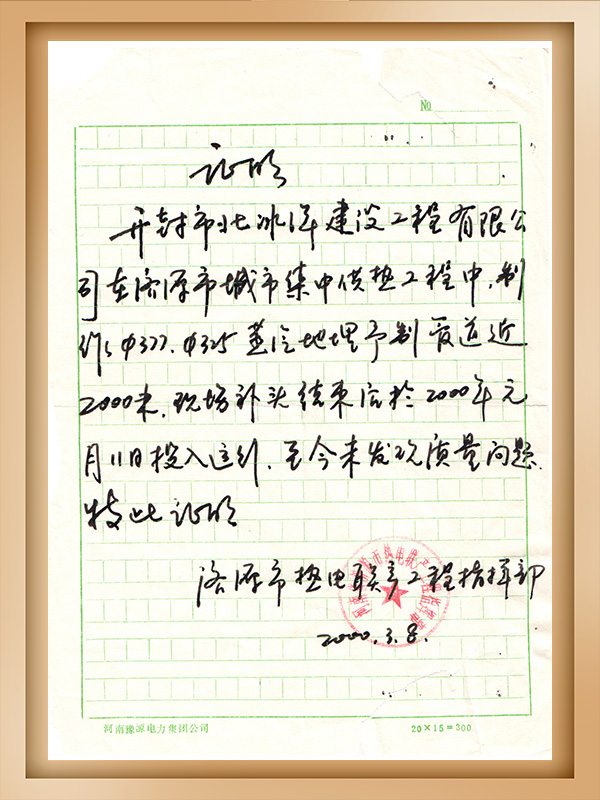 №
证明
开封市北冰洋建设工程有限公
司在济源市城市集中供热工程中,制
作Φ377、Φ325蒸汽地埋予制管道近
2000米,现场补头结束后於2000年元
月11日投入运行,至今未发现质量问题.
特此证明
济源市热电联产工程指挥部
2000.3.8.
河南豫源电力集团公司 20×15=300